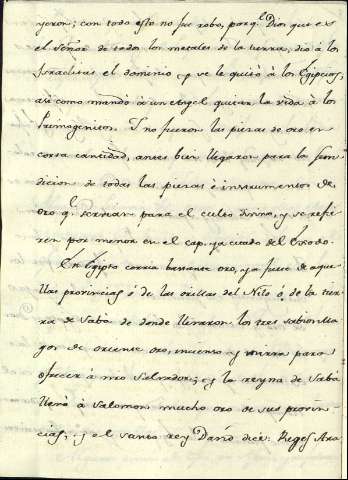 yeron; con todo esto no fue robo, porq.e Dios que es
el señor de todos los metales de la tierra, dió à los
Israelitas el dominio, y se le quitò à los Egipcios,
asi como mandó à un Angel quitar la vida à los
Primogenitos. Y no fueron las piezas de oro en
corta cantidad, antes bien llegaron para la fun
dicion de todas las piezas è instrumentos de
oro q.e servian para el culto divino, y se refie
ren por menor en el cap. ya citado del Exodo.
En Egipto corria bastante oro, ya fuese de aque
llas provincias ó de las orillas del Nilo ó de la tier
ra de Sabá de donde llevaron los tres sabios Ma
gos de oriente oro, incienso y mirra para
ofrecer à nro Salvador; y la reyna de Sabá
llevó à Salomon mucho oro de sus provin
cias; y el santo rey David dice: Reges Ara